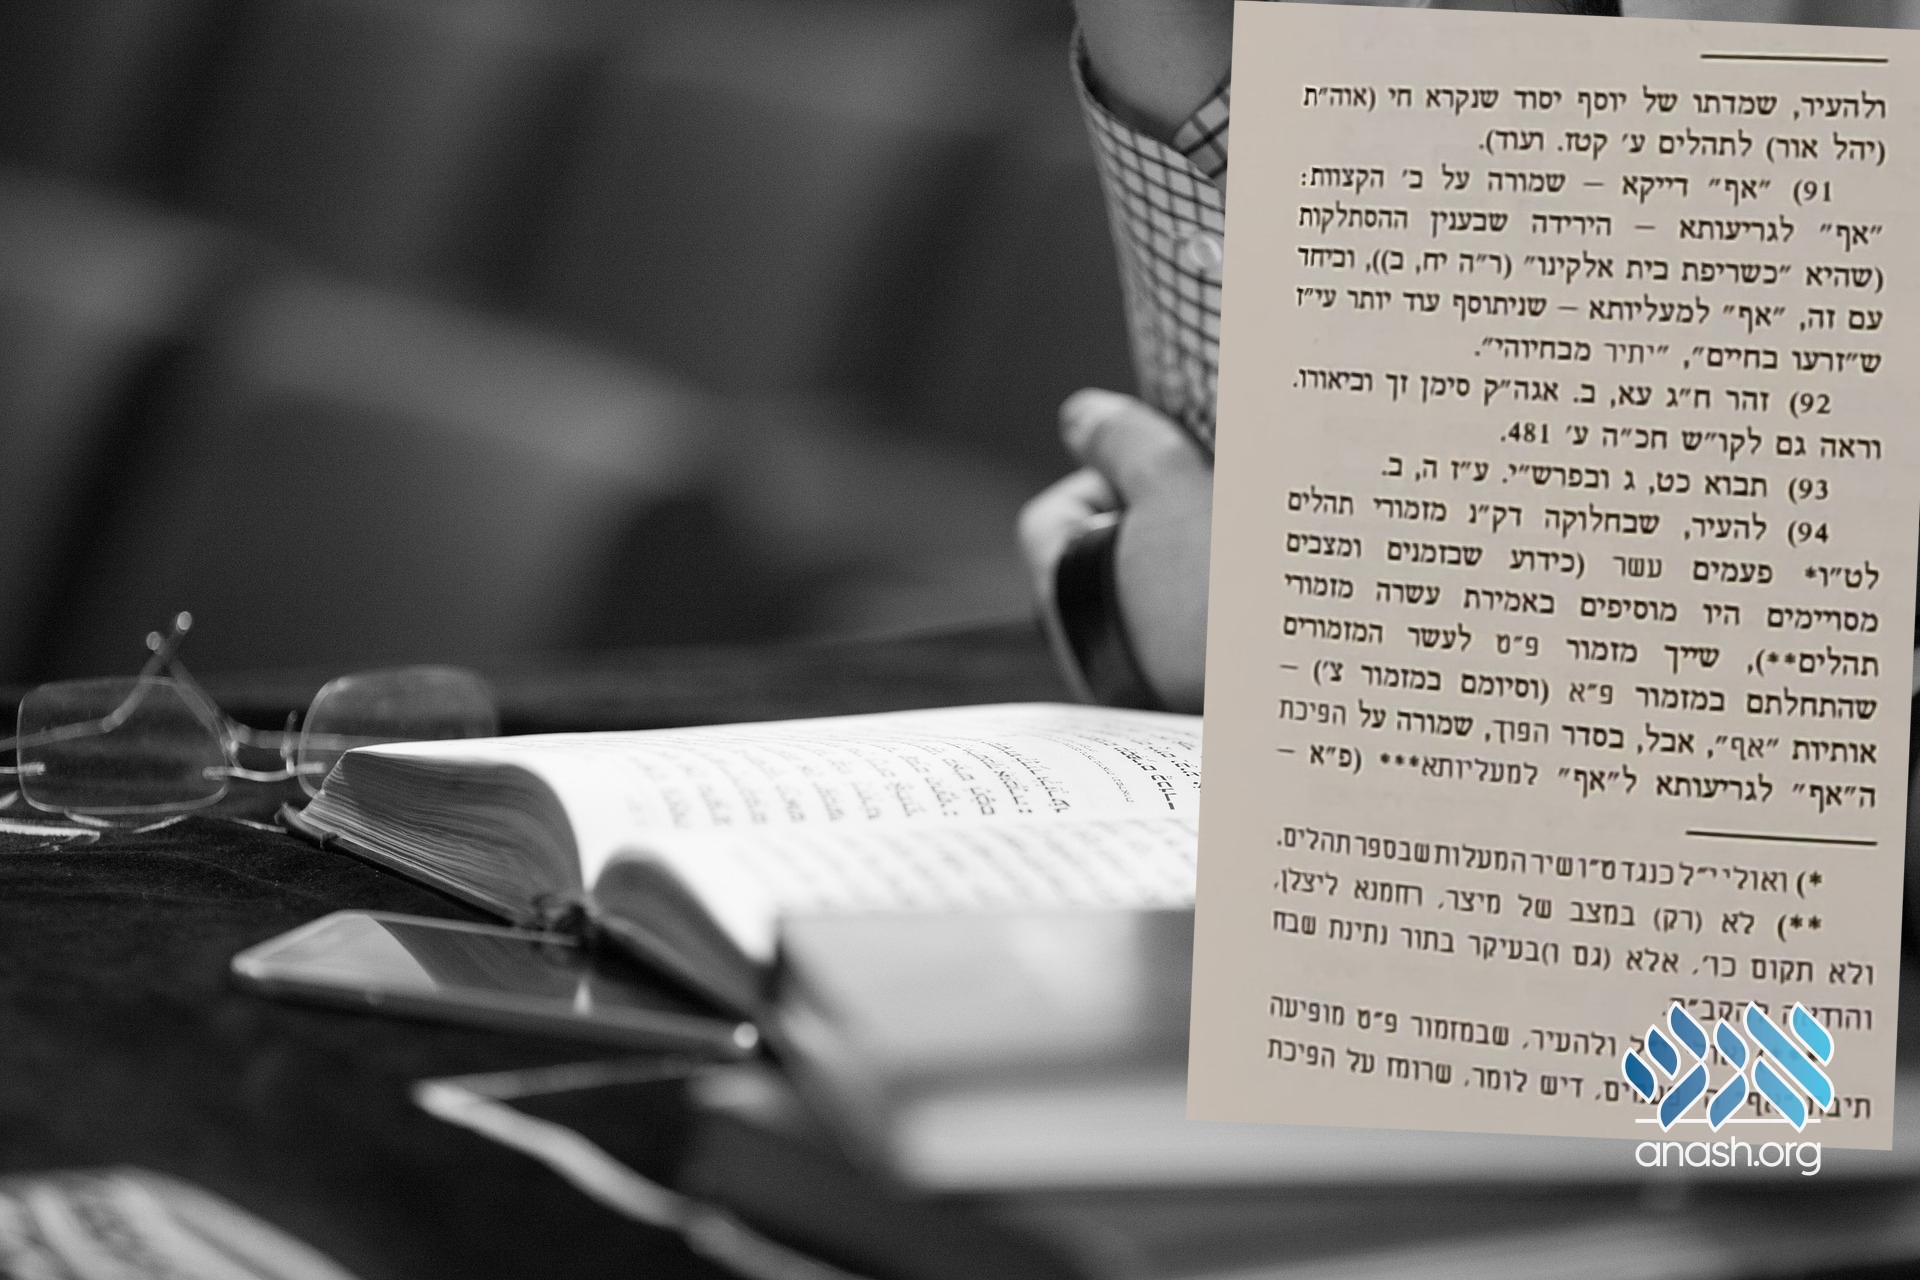 ולהעיר, שמדתו של יוסף יסוד שנקרא חי (אוה״ת
(יהל אור) לתהלים ע׳ קטז. ועוד).
91) ״אף״ דייקא – שמורה על ב׳ הקצוות:
״אף״ לגריעותא – הירידה שבענין ההסתלקות
(שהיא ״כשריפת בית אלקינו״ (ר״ה יח, ב)), וביחד
עם זה, ״אף״ למעליותא – שניתוסף עוד יותר עי״ז
ש״זרעו בחיים״, ״יתיר מבחיוהי״.
92) זהר ח״ג עא, ב. אגה״ק סימן זך וביאורו.
וראה גם לקו״ש חכ״ה ע׳ 481.
93) תבוא כט, ג ובפרש״י. ע״ז ה, ב.
94) להעיר, שבחלוקה דק״נ מזמורי תהלים
לט״ו* פעמים עשר (כידוע שבזמנים ומצבים
מסויימים היו מוסיפים באמירת עשרה מזמורי
תהלים**), שייך מזמור פ״ט לעשר המזמורים
שהתחלתם במזמור פ״א (וסיומם במזמור צ׳) –
אותיות ״אף״, אבל, בסדר הפוך, שמורה על הפיכת
ה״אף״ לגריעותא ל״אף״ למעליותא*** (פ״א –
*) ואולי י״ל כנגד ט״ו שיר המעלות שבספר תהלים.
**) לא (רק) במצב של מיצר, רחמנא ליצלן,
ולא תקום כו׳, אלא (גם ו)בעיקר בתור נתינת שבח
ולהעיר, שבמזמור פ״ט מופיעה
דיש לומר, שרומז על הפיכת
anash.org